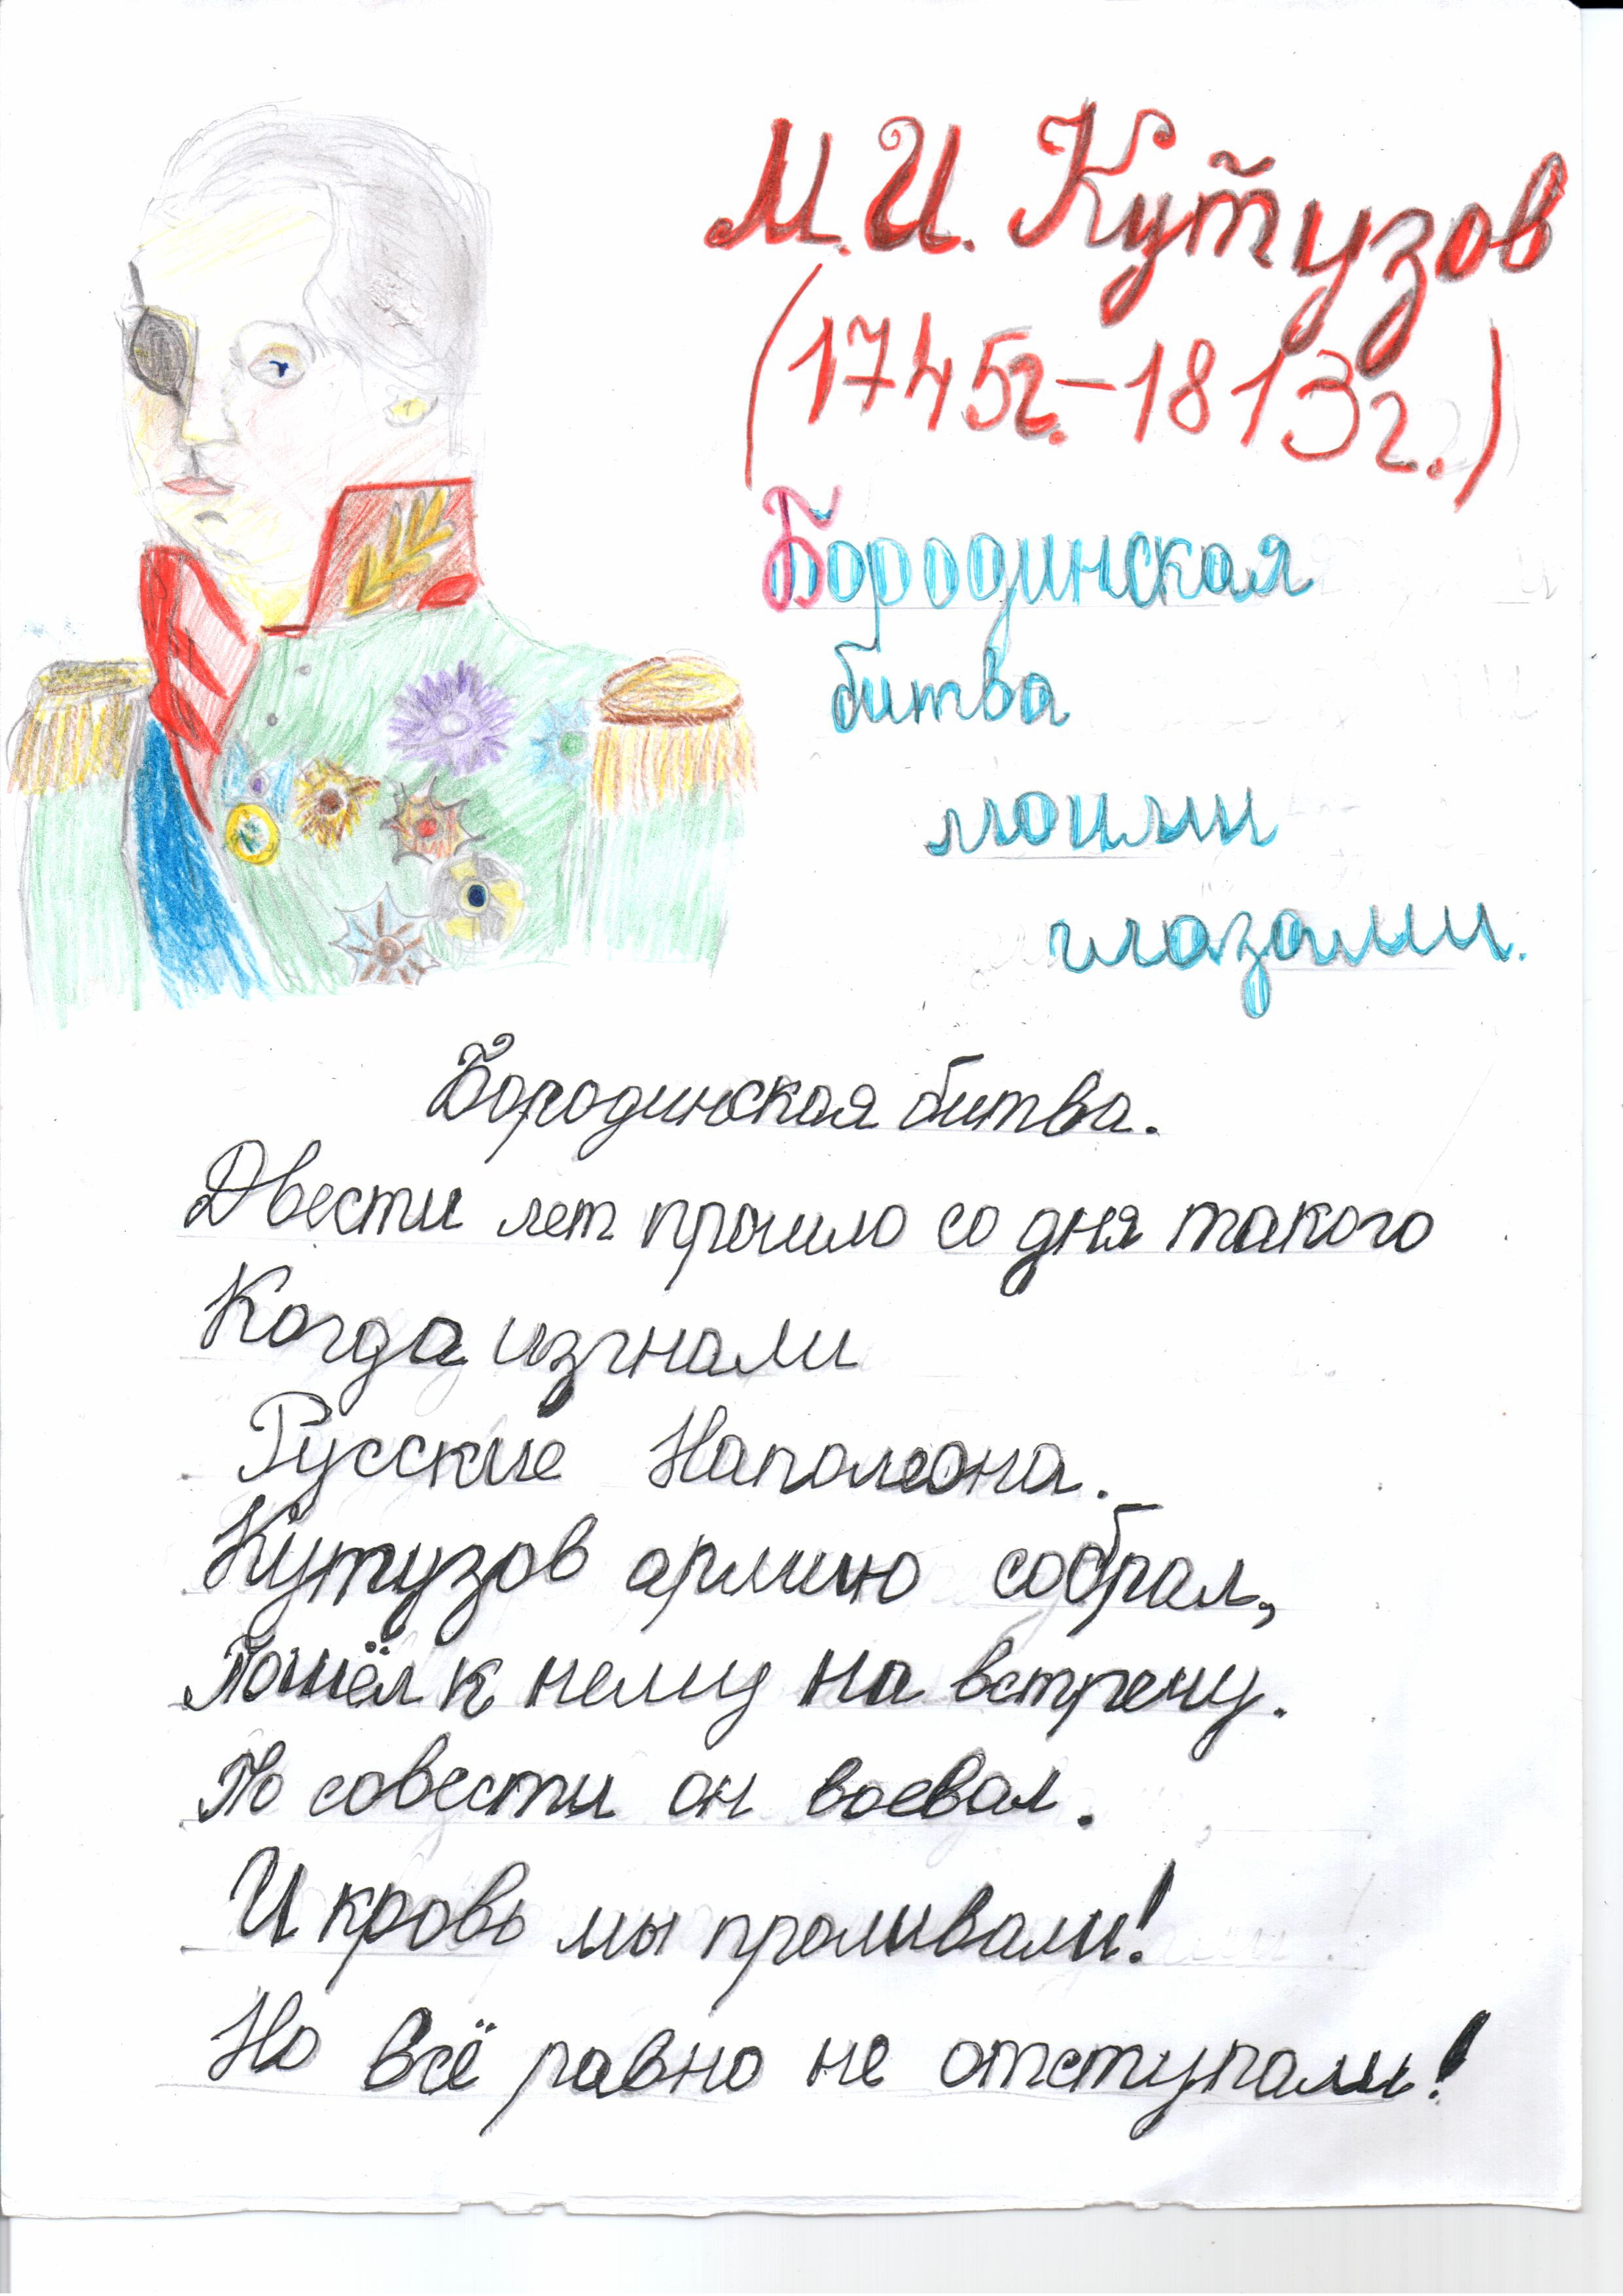 М. И. Кутузов
(1745г.-1813г.)
Бородинская
битва
моими
глазами.
Бородинская битва.
Двести лет прошло со дня такого
Когда изгнали
Русские Наполеона.
Кутузов армию собрал,
Пошёл к нему на встречу.
По совести он воевал.
И кровь мы проливали!
Но всё равно не отступали!